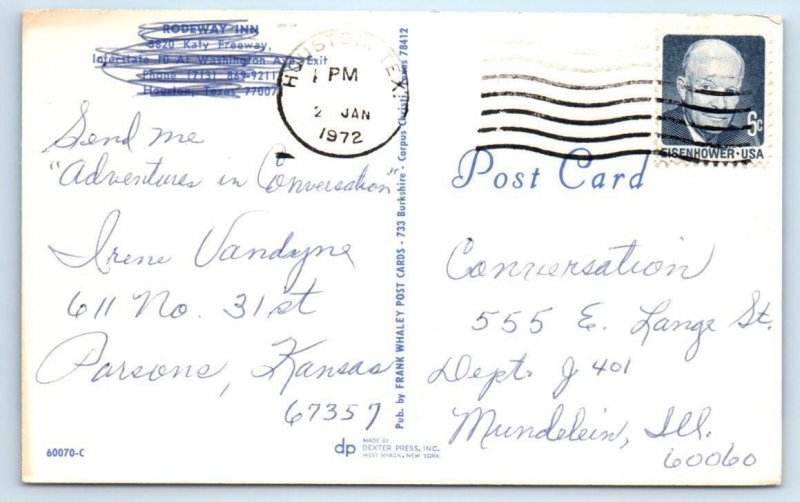 RODEWAY INN
5820 Katy Freeway,
Interstate 10 At Washington Ave. Exit
Phone (713) 869-9211
Houston, Texas 77007
HOUSTON, TEX.
PM
2 JAN
1972
6c
EISENHOWER·USA
Send me
"Adventures in Conversation"
Irene Vandyne
611 No. 31st
Parsons, Kansas
67357
60070-C
Pub. by FRANK WHALEY POST CARDS - 733 Burkshire - Corpus Christi, Texas 78412
dp
MADE BY
DEXTER PRESS, INC.
WEST NYACK, NEW YORK
Post Card
Conversation
555 E. Lange St.
Dept. J 401
Mundelein, Ill.
60060